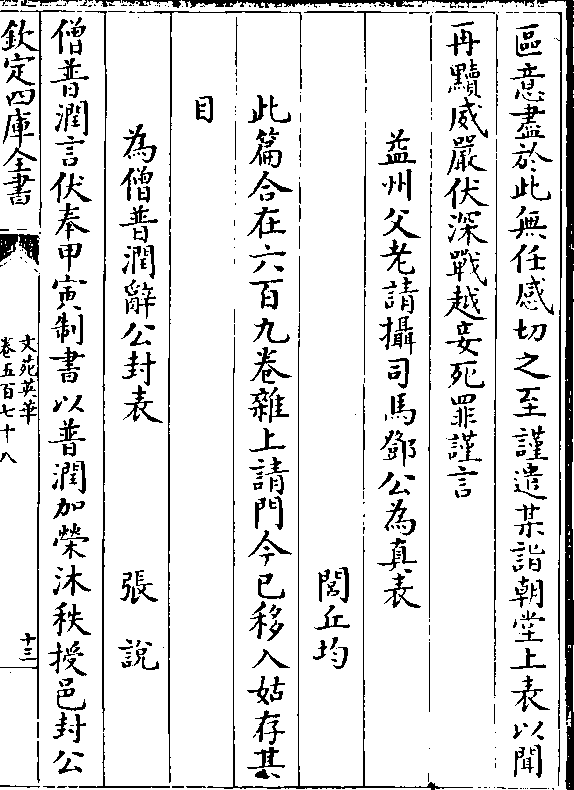 區意盡於此無任感切之至謹遣某詣朝堂上表以聞
再黷威嚴伏深戰越妾死罪謹言
益州父老請攝司馬鄧公為真表
閭丘均
此篇合在六百九卷雜上請門今已移入姑存其
目
為僧普潤辭公封表 張說
僧普潤言伏奉甲寅制書以普潤加榮沐秩授邑封公
欽定四庫全書
文苑英華
卷五百七十八
十三